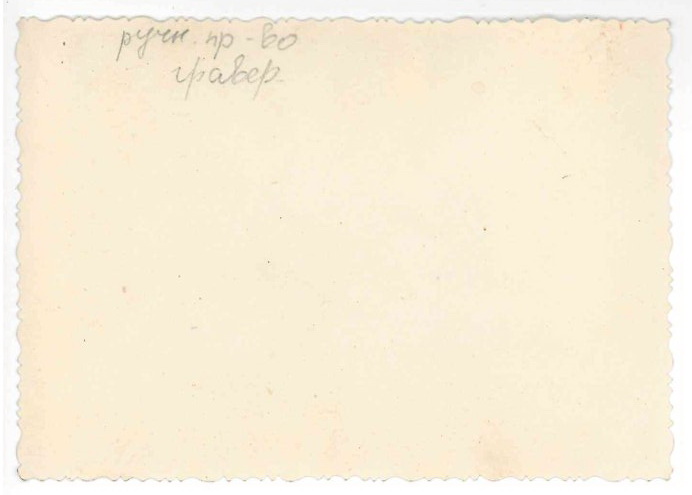 ручн. пр-во
гравер.